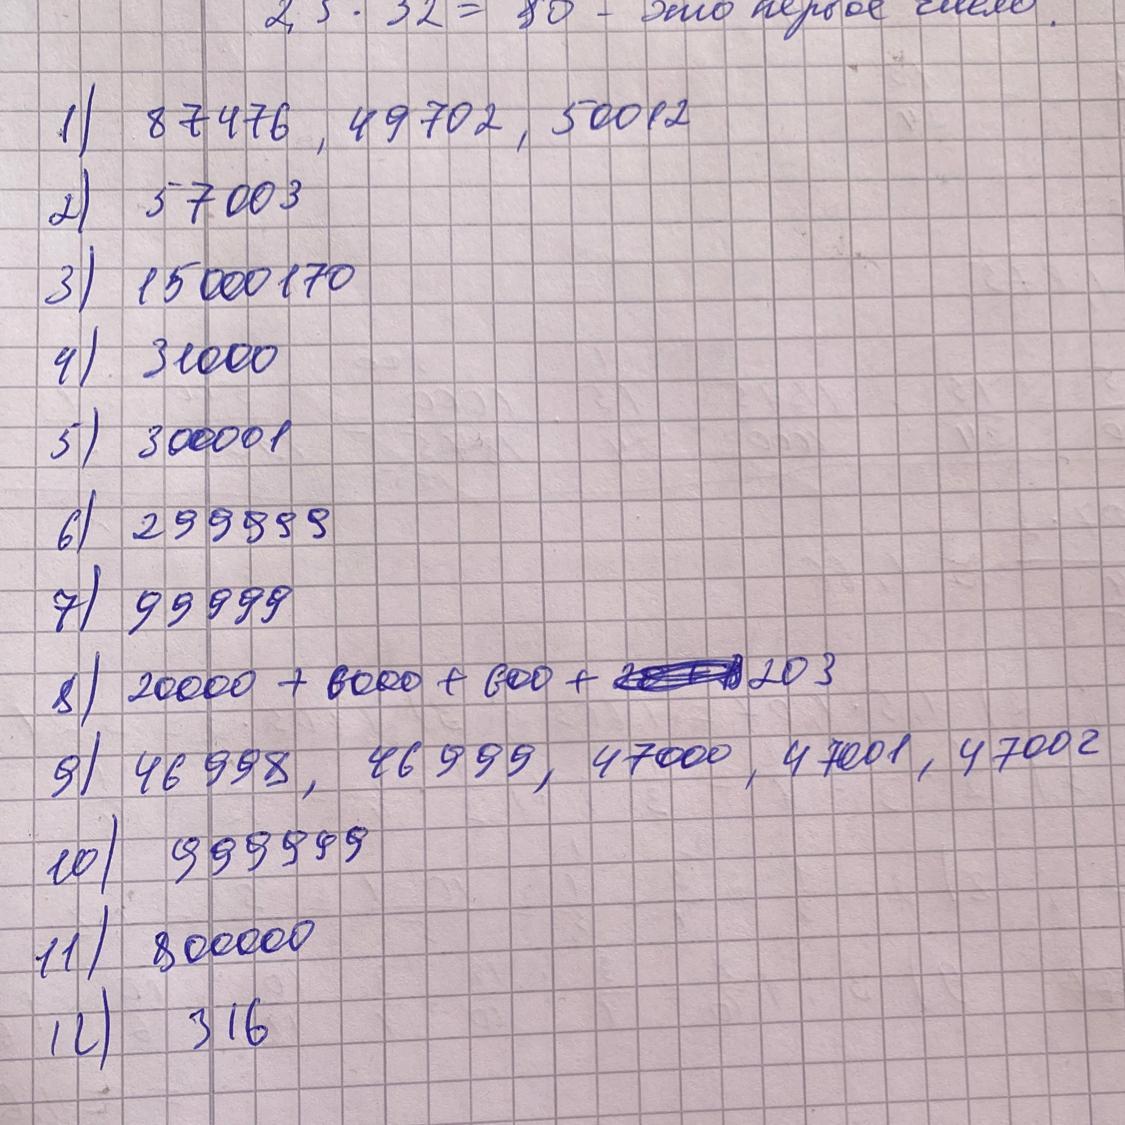 2,5 · 32 = 80 - это первое число.
1) 87476, 49702, 50012
2) 57003
3) 15000170
4) 31000
5) 300001
6) 299999
7) 99999
8) 20000 + 6000 + 600 + 203
9) 46998, 46999, 47000, 47001, 47002
10) 999999
11) 800000
12) 316